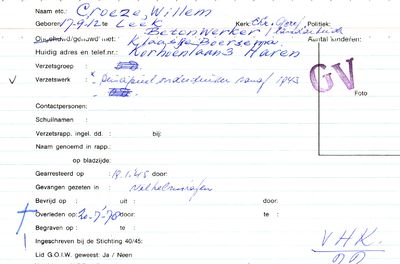 Naam etc.: Croeze, Willem
Geboren 17-9-12 te Leek Kerk: Chr. Geref. Politiek:
Betonwerker
Gescheiden/gehuwd met: Klaasje Boersema. Aantal kinderen:
Huidig adres en telef.nr.: Kornoenlaan 3 Haren
Verzetsgroep :
Verzetswerk : principieel onderduiker vanaf 1943
GV
Foto
Contactpersonen:
Schuilnamen :
Verzetsrapp. ingel. dd. : bij:
Naam genoemd in rapp.:
op bladzijde:
Gearresteerd op : 18.1.45 door:
Gevangen gezeten in :
Bevrijd op : uit : door:
Overleden op: 20-7-70 door: te :
Begraven op : te :
Ingeschreven bij de Stichting 40/45: VHK.
Lid G.O.I.W. geweest Ja / Neen